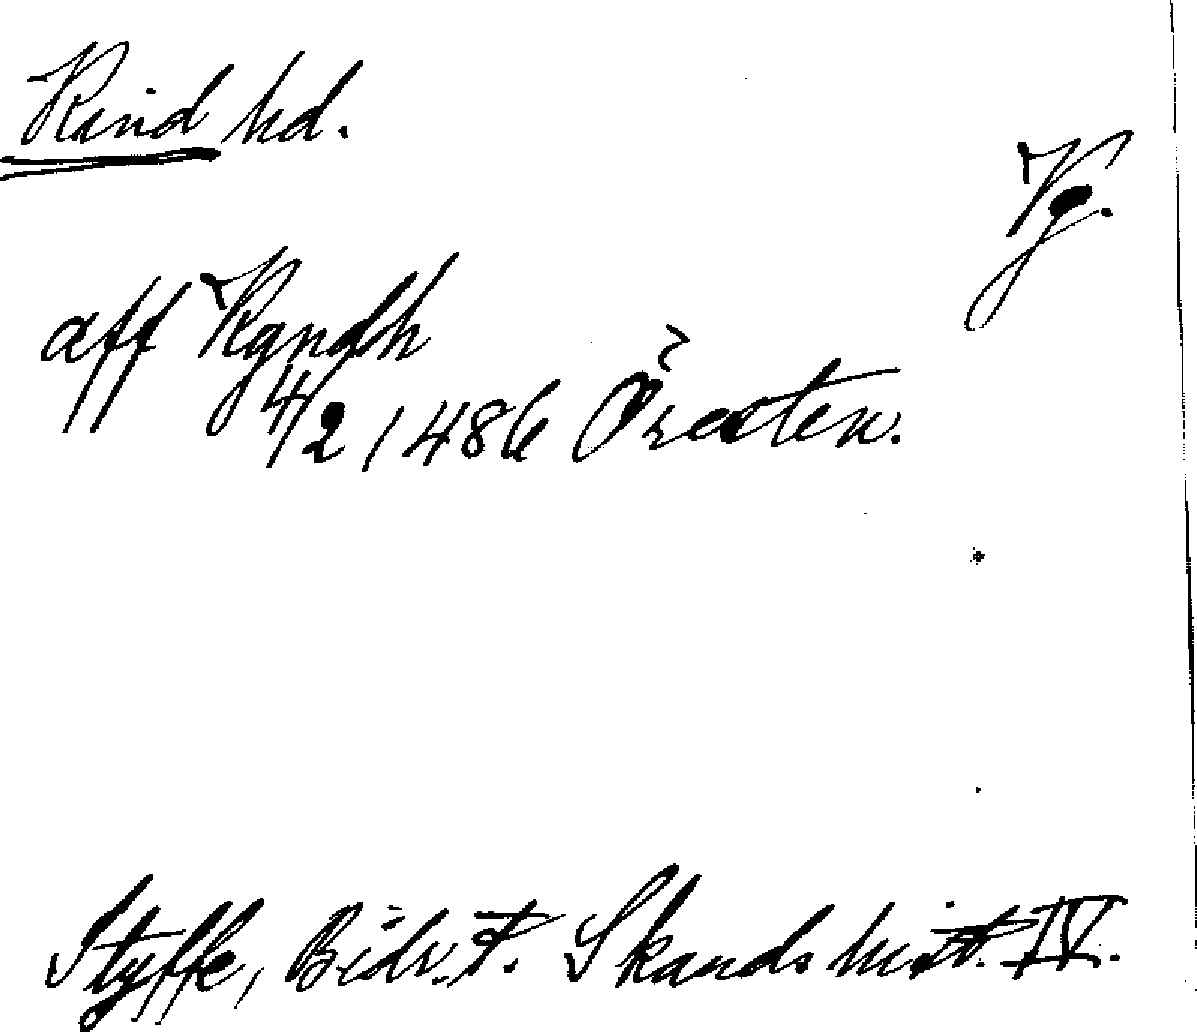 Kind hd.
Vg.
aff Kyndh
4/2 1486 Öresten.
Styffe, Bidr. t. Skands hist. IV.